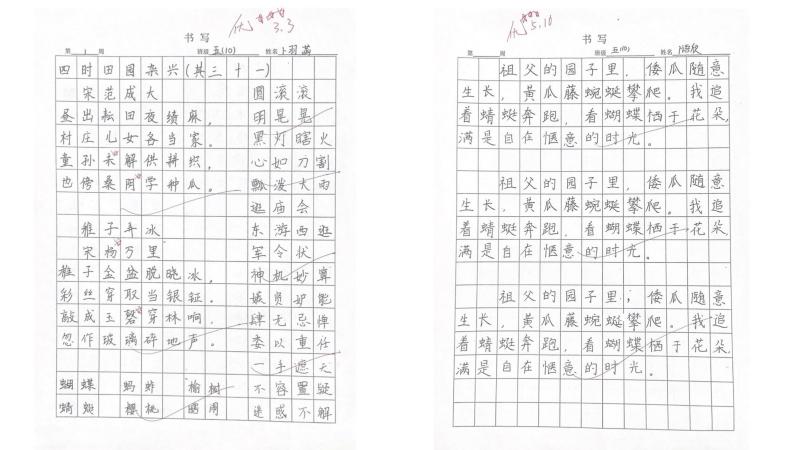 优 3.3
书写
第 1 周 班级 五(10) 姓名 卜羽菡
四时田园杂兴(其三十一)
宋范成大 圆滚滚
昼出耘田夜绩麻， 明晃晃
村庄儿女各当家。 黑灯瞎火
童孙未解供耕织， 心如刀割
也傍桑阴学种瓜。 瓢泼大雨
逛庙会
稚子弄冰 东游西逛
宋杨万里 军令状
稚子金盆脱晓冰， 神机妙算
彩丝穿取当银钲。 嫉贤妒能
敲成玉磬穿林响， 肆无忌惮
忽作玻璃碎地声。 委以重任
一手遮天
蝴蝶 蚂蚱 榆树 不容置疑
蜻蜓 樱桃 迷惑不解
优 5.10
书写
第 周 班级 五(10) 姓名
祖父的园子里，倭瓜随意
生长，黄瓜藤蜿蜒攀爬。我追
着蜻蜓奔跑，看蝴蝶栖于花朵，
满是自在惬意的时光。
祖父的园子里，倭瓜随意
生长，黄瓜藤蜿蜒攀爬。我追
着蜻蜓奔跑，看蝴蝶栖于花朵，
满是自在惬意的时光。
祖父的园子里，倭瓜随意
生长，黄瓜藤蜿蜒攀爬。我追
着蜻蜓奔跑，看蝴蝶栖于花朵，
满是自在惬意的时光。